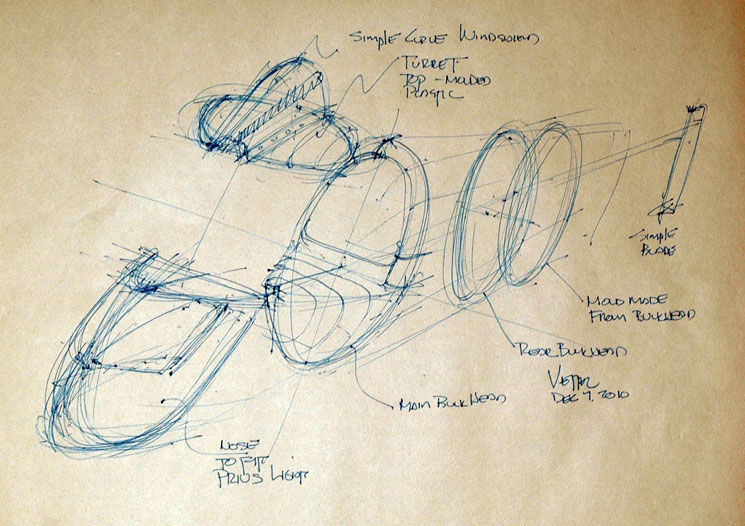 Simple Curve Windshield
Turret
Top - Molded
Plastic
Simple
Blade
Mold Made
From Bulkhead
Rear Bulkhead
Vetter
Dec 7, 2010
Main Bulkhead
Nose
To Fit
Prius Light